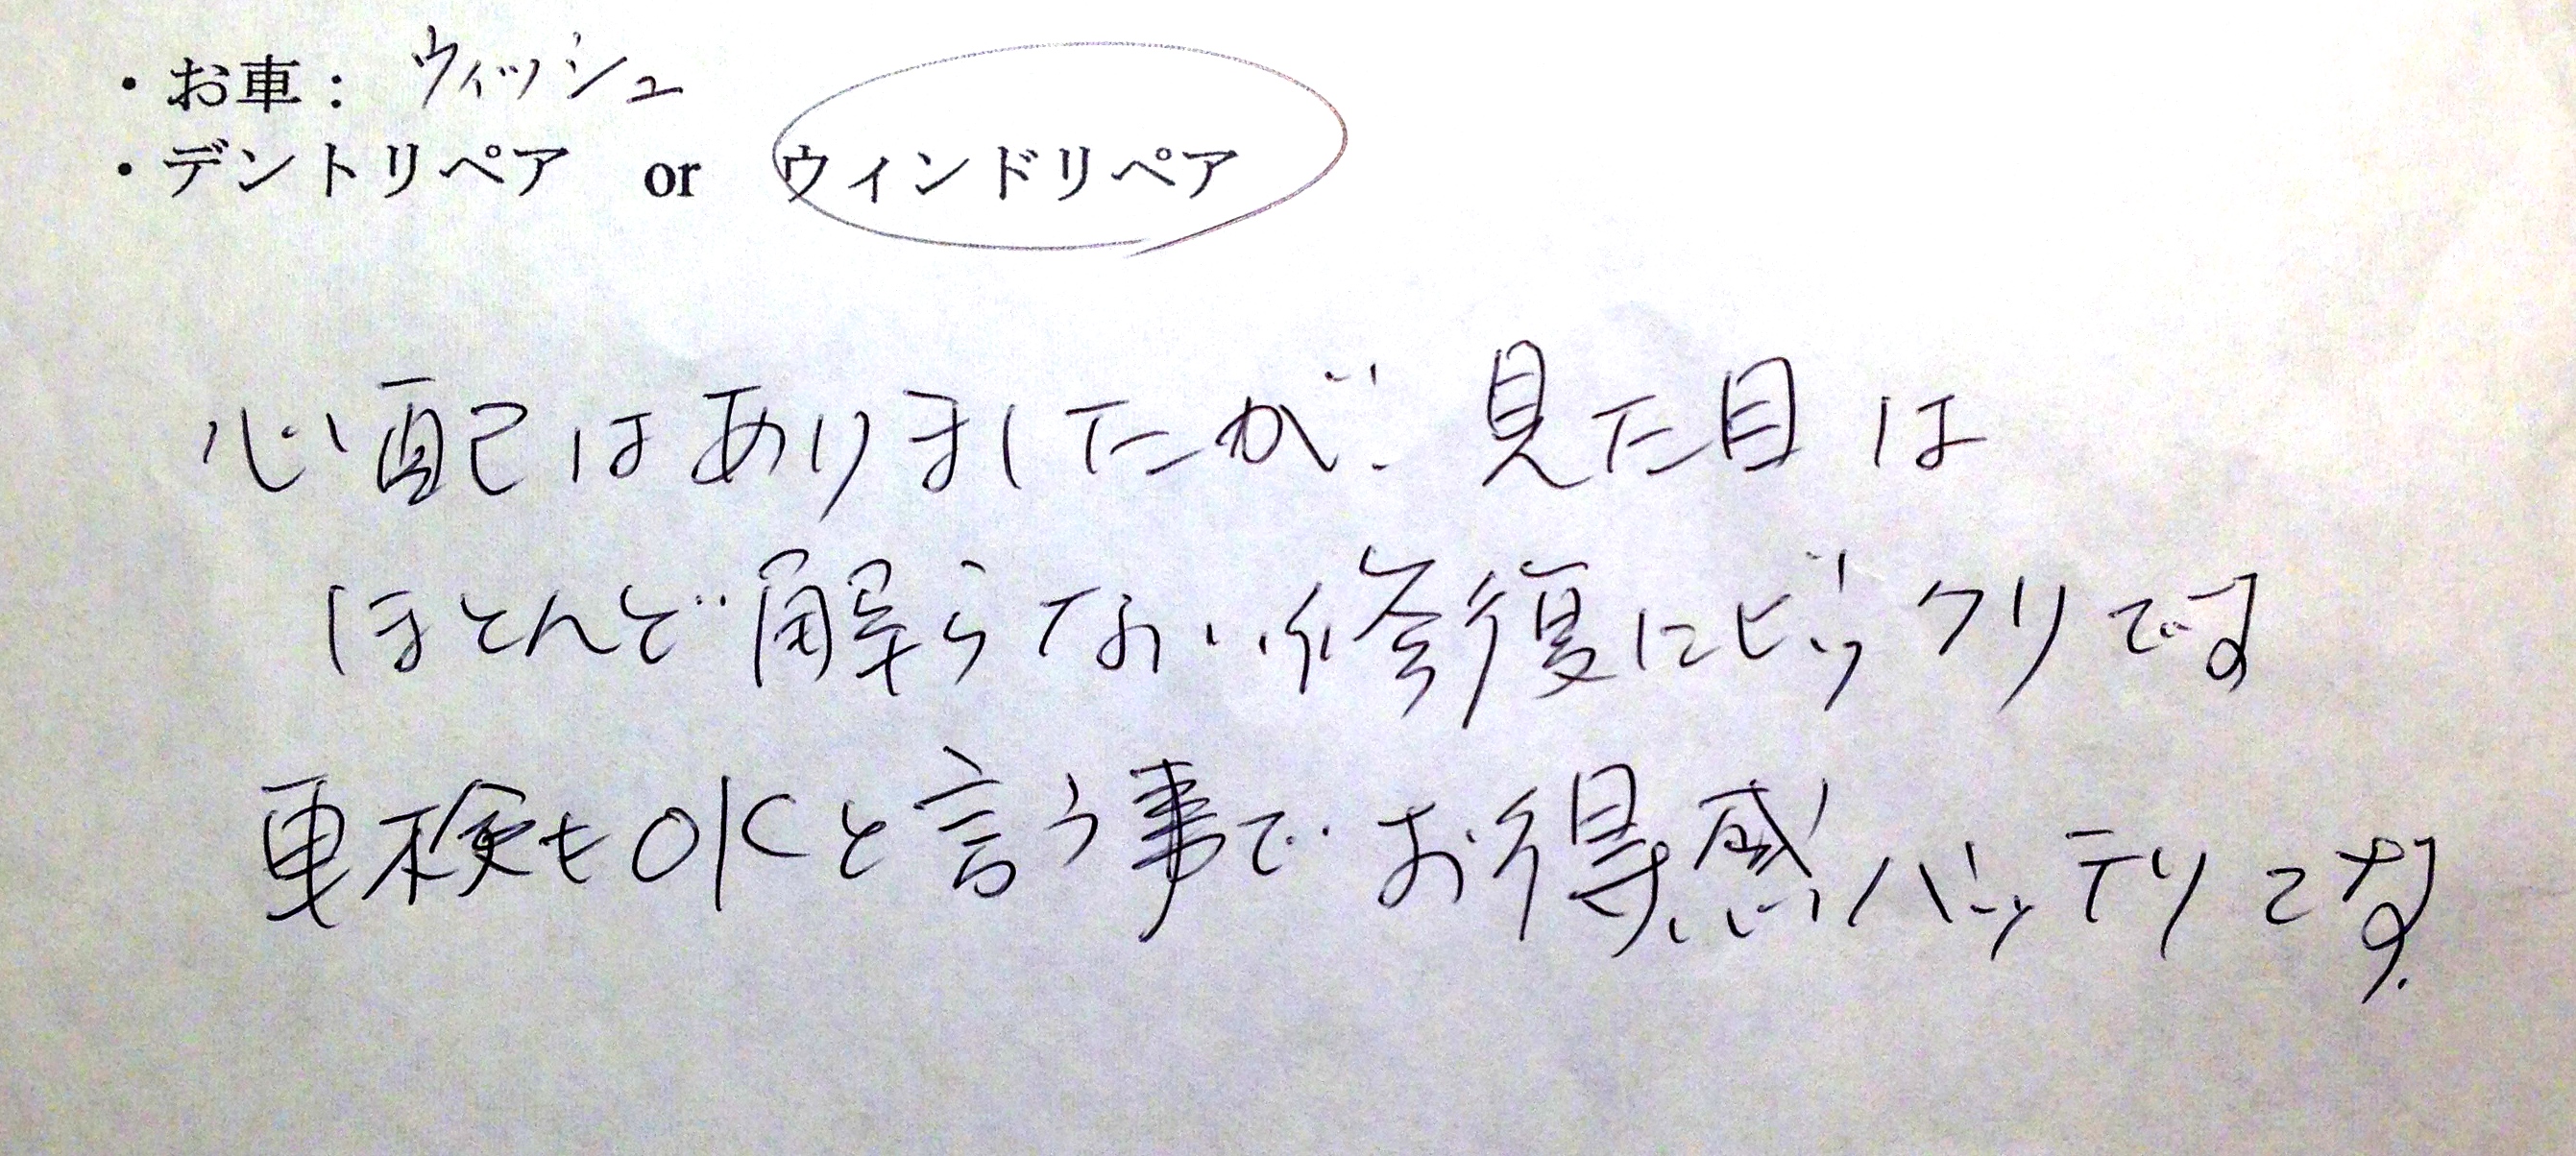 ・お車： ウィッシュ
・デントリペア or ウィンドリペア
心配はありましたが、見た目は
ほとんど解らない修復にビックリです
車検もOKと言う事でお得感バッチリです。